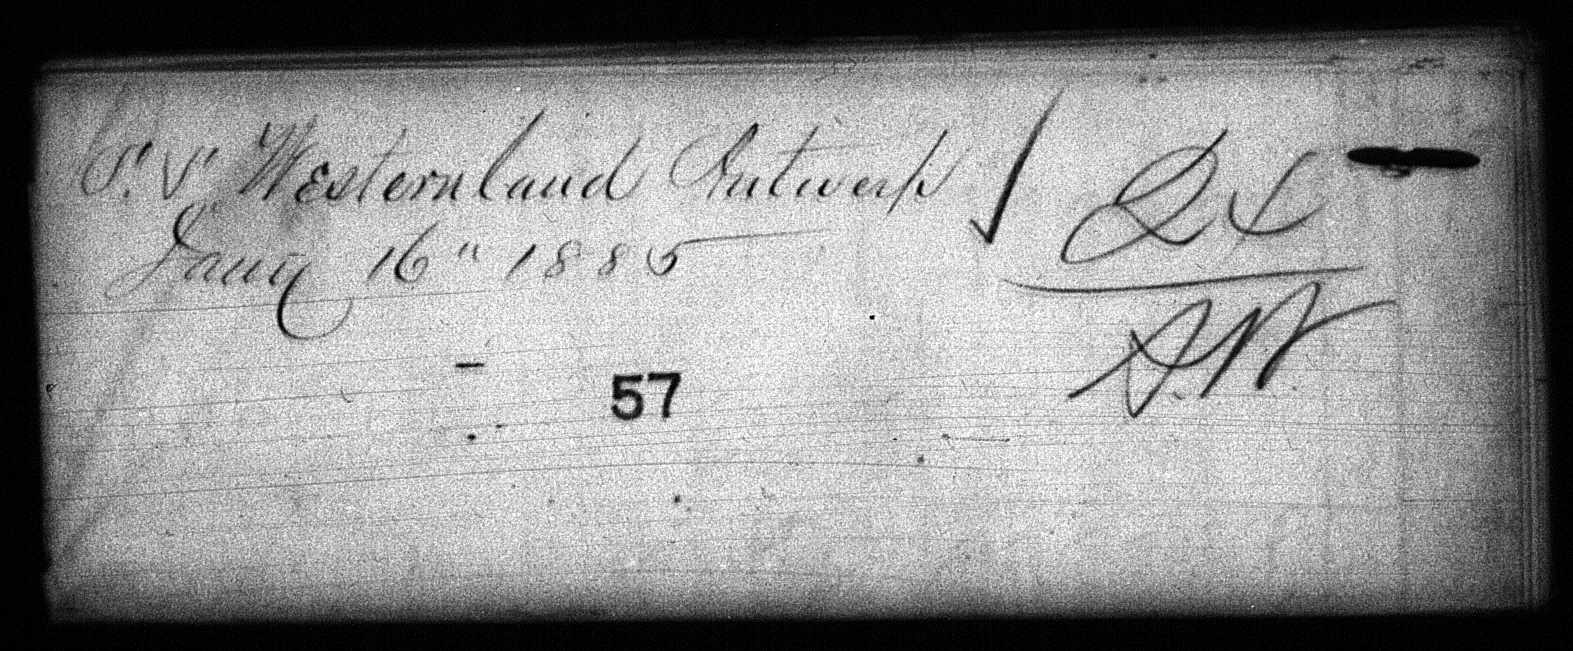 S.S. Westernland Antwerp ✓
Jany 16" 1885
57